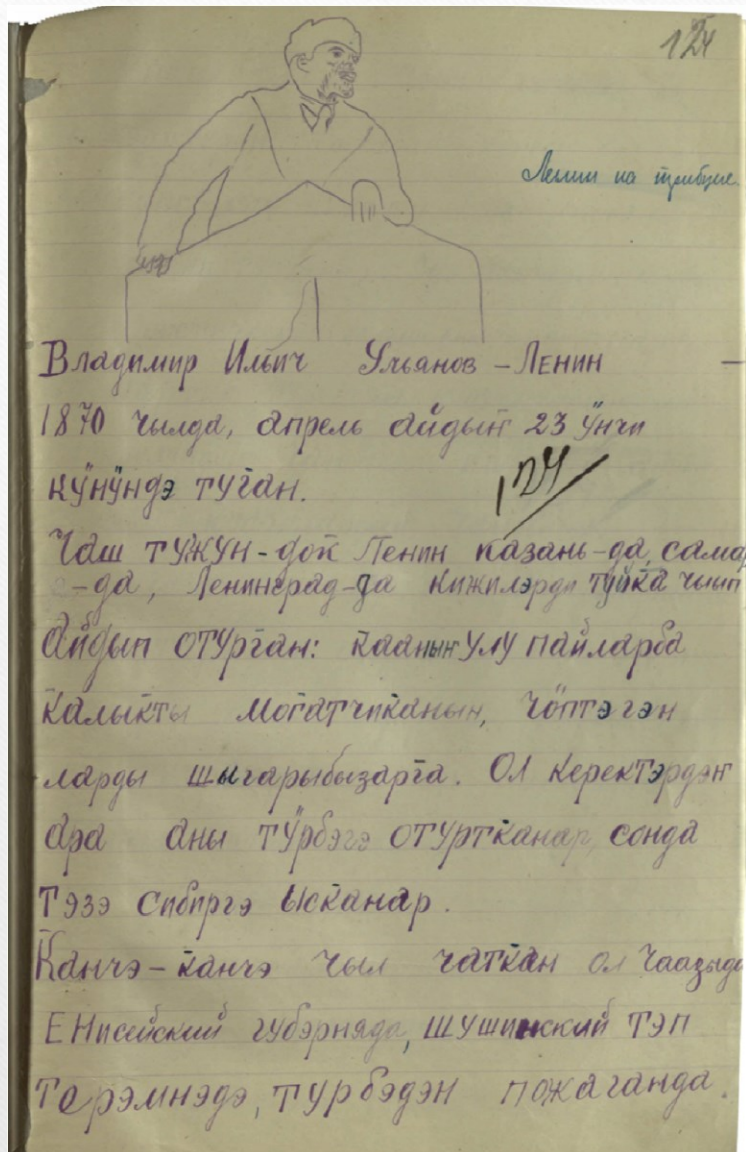 124
Ленин на трибуне
Владимир Ильич Ульянов – Ленин –
1870 чылда, апрель айдың 23 ӱнчи
кӱнӱндэ туған.
124
Чаш тужун-док Ленин Казань-да, самар
а-да, Ленинград-да кижилэрди туйка чыып
айдып отурған: кааның улу пайларба
калыкты моғатчиканын, чӧптэгэн
ларды шығарыбызарға. Ол керектэрдэң
ара аны тӱрбэгэ отуртканар, сонда
тэзэ сибиргэ ысканар.
Канчэ-канчэ чыл чаткан ол чаазыда
Енисейский губэрняда, шушинский тэп
терэмнэдэ, турбэдэн пожаганда.